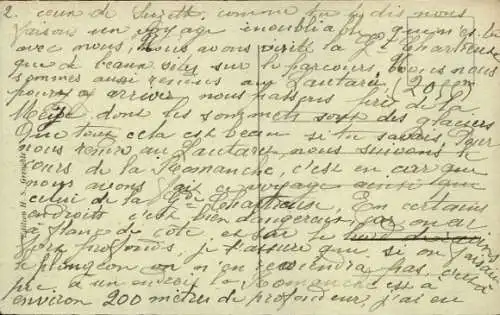 2. cour de Suzette. comme tu le dis nous
faisons un voyage inoubliable que n'es tu
avec nous, nous avons visité la Gde Chartreuse
que de beaux sites sur le parcours, nous nous
sommes aussi rendus au Lautaret, (20
pour y arriver nous passons près de la
Meije dont les sommets sont des glaciers
Que tout cela est beau si tu savais. Pour
nous rendre au Lautaret nous suivons le
cours de la Romanche, c'est en car que
nous avons fait ce voyage ainsi que
celui de la Gde Chartreuse. En certains
endroits c'est bien dangereux car on est
à flanc de côte et sur le bord de ravins
fort profonds, je t'assure que si on faisait
le plongeon on n'en reviendrai pas. c'est à
pic. à un endroit la Romanche est à
environ 200 mètres de profondeur, j'ai eu
Edition H. Grenoble